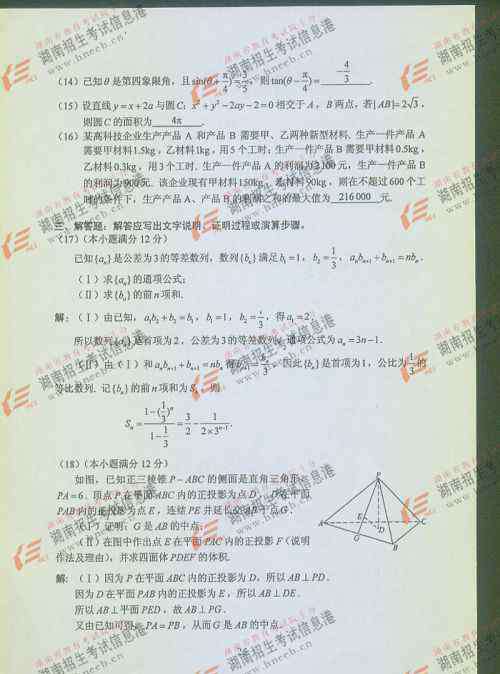 (14) 已知θ是第四象限角，且sin(θ+π/4)=3/5，则tan(θ-π/4)= -4/3 .
(15) 设直线y=x+2a与圆C：x²+y²-2ay-2=0相交于A，B两点，若|AB|=2√3，
则圆C的面积为 4π .
(16) 某高科技企业生产产品 A 和产品 B 需要甲、乙两种新型材料. 生产一件产品 A
需要甲材料1.5kg，乙材料1kg，用5个工时；生产一件产品 B 需要甲材料0.5kg，
乙材料0.3kg，用3个工时. 生产一件产品 A 的利润为2100元，生产一件产品 B
的利润为900元. 该企业现有甲材料150kg，乙材料90kg，则在不超过600个工
时的条件下，生产产品A、产品B的利润之和的最大值为 216000 元.
三、解答题：解答应写出文字说明、证明过程或演算步骤.
(17)(本小题满分12分)
已知{aₙ}是公差为3的等差数列，数列{bₙ}满足b₁=1，b₂=1/3，aₙbₙ₊₁+bₙ₊₁=nbₙ.
(Ⅰ)求{aₙ}的通项公式；
(Ⅱ)求{bₙ}的前n项和.
解：(Ⅰ)由已知，a₁b₂+b₂=b₁，b₁=1，b₂=1/3，得a₁=2，
所以数列{aₙ}是首项为2，公差为3的等差数列，通项公式为aₙ=3n-1.
(Ⅱ)由(Ⅰ)和aₙbₙ₊₁+bₙ₊₁=nbₙ得bₙ₊₁=bₙ/3，因此{bₙ}是首项为1，公比为1/3的
等比数列. 记{bₙ}的前n项和为Sₙ，则
Sₙ=(1-(1/3)ⁿ)/(1-1/3)=3/2-1/(2×3ⁿ⁻¹).
(18)(本小题满分12分)
如图，已知正三棱锥P-ABC的侧面是直角三角形，
PA=6. 顶点P在平面ABC内的正投影为点D，D在平面
PAB内的正投影为点E，连结PE并延长交AB于点G.
(Ⅰ)证明：G是AB的中点；
(Ⅱ)在图中作出点E在平面PAC内的正投影F(说明
作法及理由)，并求四面体PDEF的体积.
P
A
E
D
C
G
B
解：(Ⅰ)因为P在平面ABC内的正投影为D，所以AB⊥PD.
因为D在平面PAB内的正投影为E，所以AB⊥DE.
所以AB⊥平面PED，故AB⊥PG.
又由已知可得，PA=PB，从而G是AB的中点.
湖南招生考试信息港
www.hneeb.cn